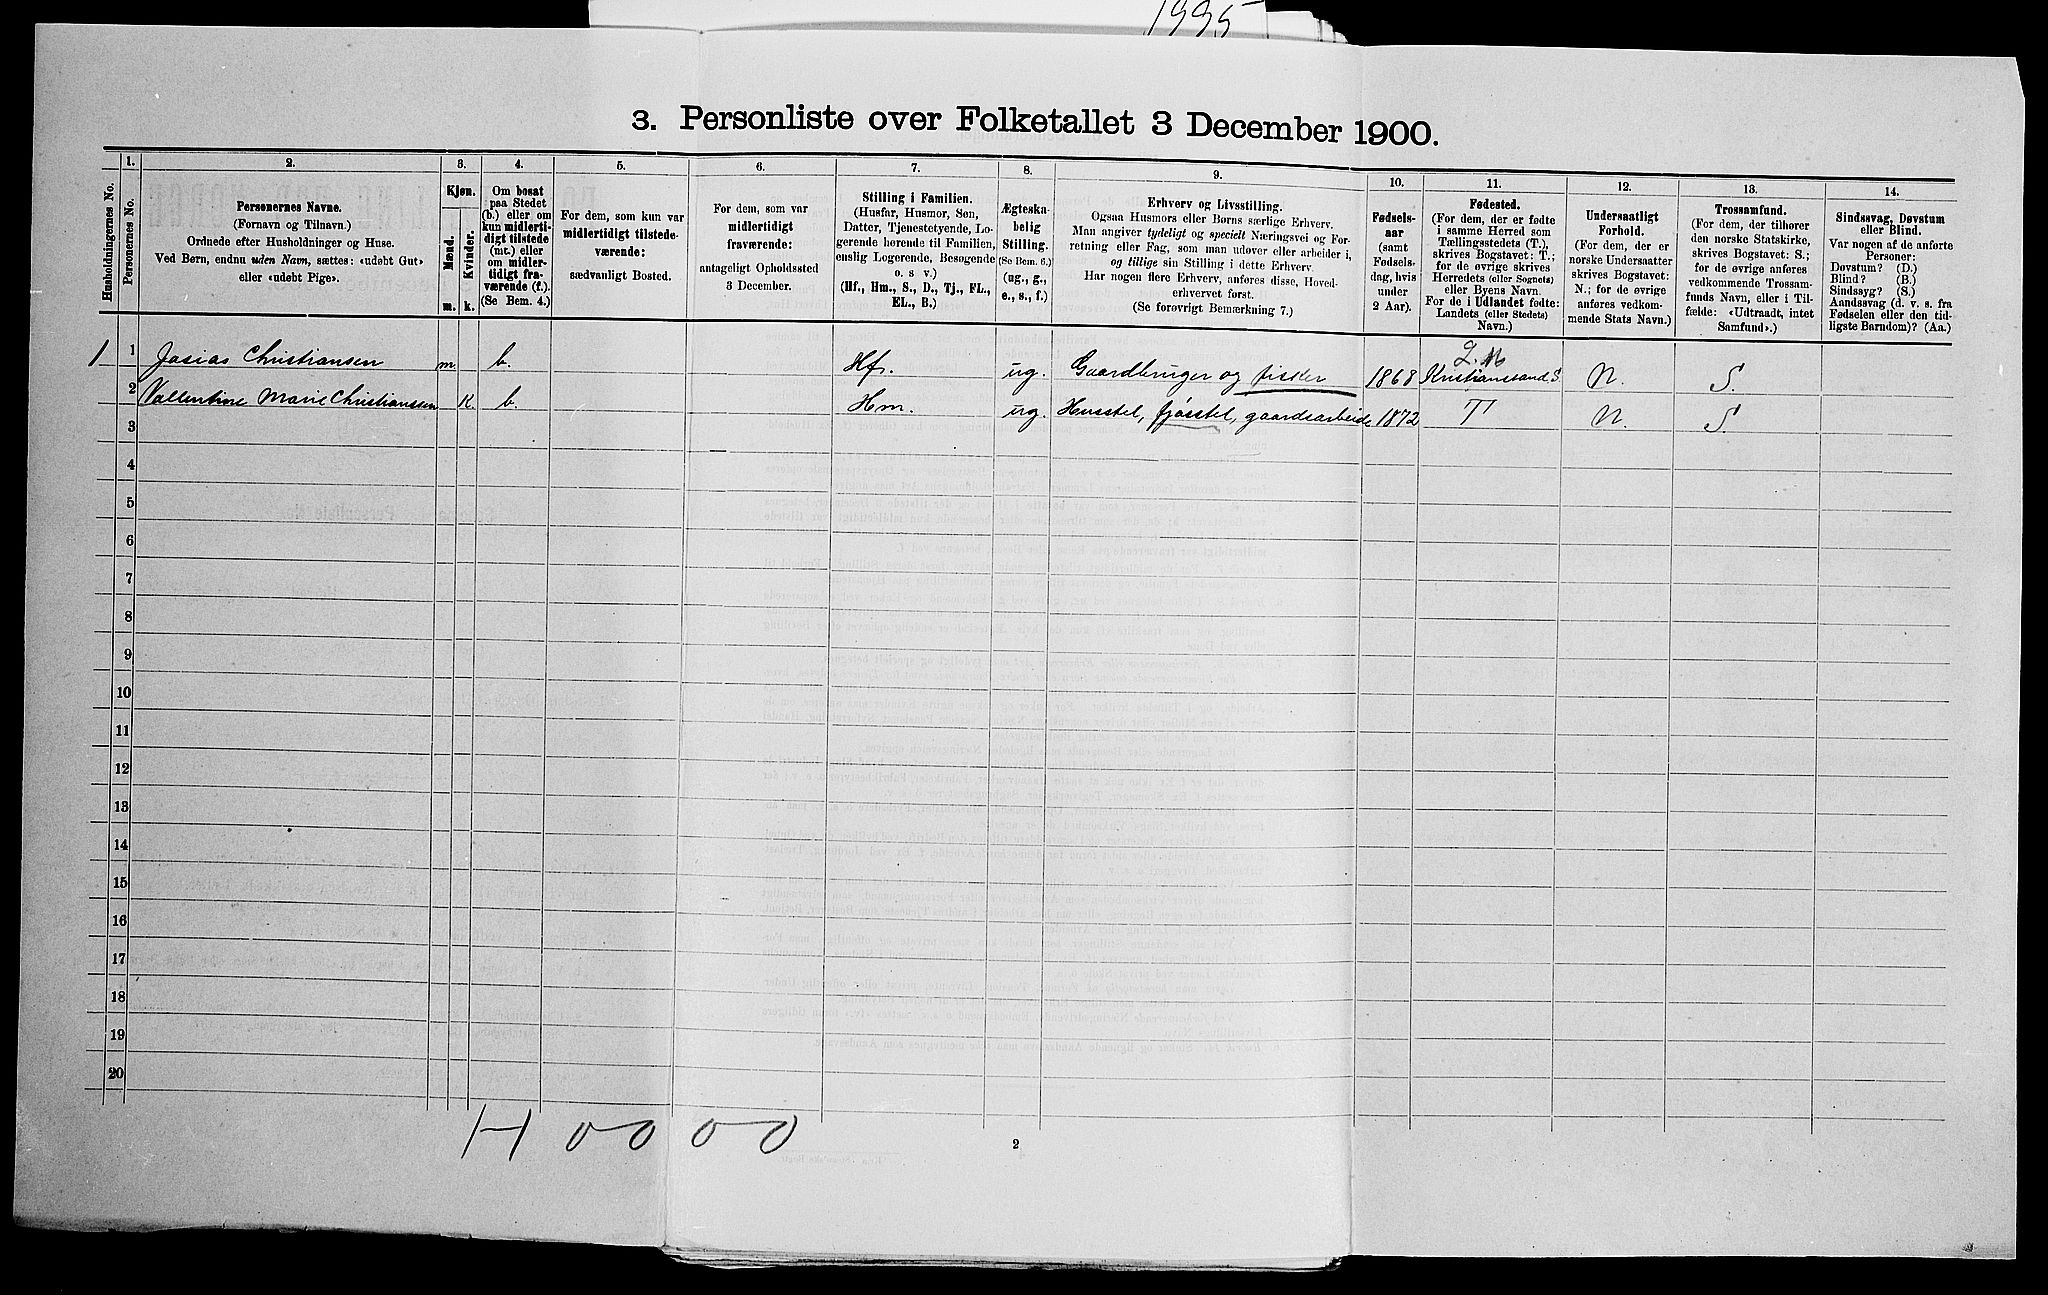 1995
3. Personliste over Folketallet 3 December 1900.
Husholdningernes No.
1.
Personernes No.
2.
Personernes Navne.
(Fornavn og Tilnavn.)
Ordnede efter Husholdninger og Huse.
Ved Børn, endnu uden Navn, sættes: «udøbt Gut»
eller «udøbt Pige».
3.
Kjøn.
Mænd.
Kvinder.
m.
k.
4.
Om bosat
paa Stedet
(b.) eller om
kun midlerti-
digt tilstede
(mt.) eller
om midler-
tidigt fra-
værende (f.).
(Se Bem. 4.)
5.
For dem, som kun var
midlertidigt tilstede-
værende:
sædvanligt Bosted.
6.
For dem, som var
midlertidigt
fraværende:
antageligt Opholdssted
3 December.
7.
Stilling i Familien.
(Husfar, Husmor, Søn,
Datter, Tjenestetyende, Lo-
gerende hørende til Familien,
enslig Logerende, Besøgende
o. s v.)
(Hf., Hm., S., D., Tj., FL.,
EL., B.)
8.
Ægteska-
belig
Stilling.
(Se Bem. 6.)
(ug., g.,
e., s., f.)
9.
Erhverv og Livsstilling.
Ogsaa Husmors eller Børns særlige Erhverv.
Man angiver tydeligt og specielt Næringsvei og For-
retning eller Fag, som man udøver eller arbeider i,
og tillige sin Stilling i dette Erhverv.
Har nogen flere Erhverv, anføres disse, Hoved-
erhvervet først.
(Se forøvrigt Bemærkning 7.)
10.
Fødsels-
aar
(samt
Fødsels-
dag, hvis
under
2 Aar).
11.
Fødested.
(For dem, der er fødte
i samme Herred som
Tællingsstedets (T.),
skrives Bogstavet: T.;
for de øvrige skrives
Herredets (eller Sognets)
eller Byens Navn.
For de i Udlandet fødte:
Landets (eller Stedets)
Navn.)
12.
Undersaatligt
Forhold.
(For dem, der er
norske Undersaatter
skrives Bogstavet:
N.; for de øvrige
anføres vedkom-
mende Stats Navn.)
13.
Trossamfund.
(For dem, der tilhører
den norske Statskirke,
skrives Bogstavet: S.;
for de øvrige anføres
vedkommende Trossam-
funds Navn, eller i Til-
fælde: «Udtraadt, intet
Samfund».)
14.
Sindssvag, Døvstum
eller Blind.
Var nogen af de anførte
Personer:
Døvstum? (D.)
Blind? (B.)
Sindssyg? (S.)
Aandssvag (d. v. s. fra
Fødselen eller den tid-
ligste Barndom)? (Aa.)
1 1 Josias Christiansen m. b. Hf. ug. Gaardbruger og fisker 1868 Kristianssand S. N. S.
2 Vallentine Marie Christiansen K. b. Hm. ug. Husstel, fjøsstel, gaardsarbeide 1872 T N. S.
3
4
5
6
7
8
9
10
11
12
13
14
15
16
17
18
19
20
2